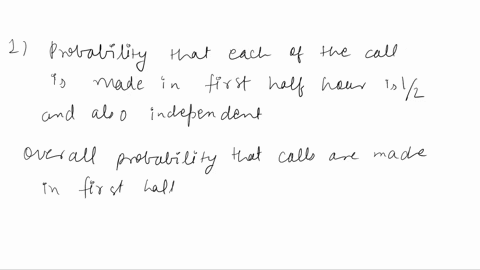 1) Probability that each of the call
is made in first half hour is 1/2
and also independent
Overall probability that calls are made
in first half